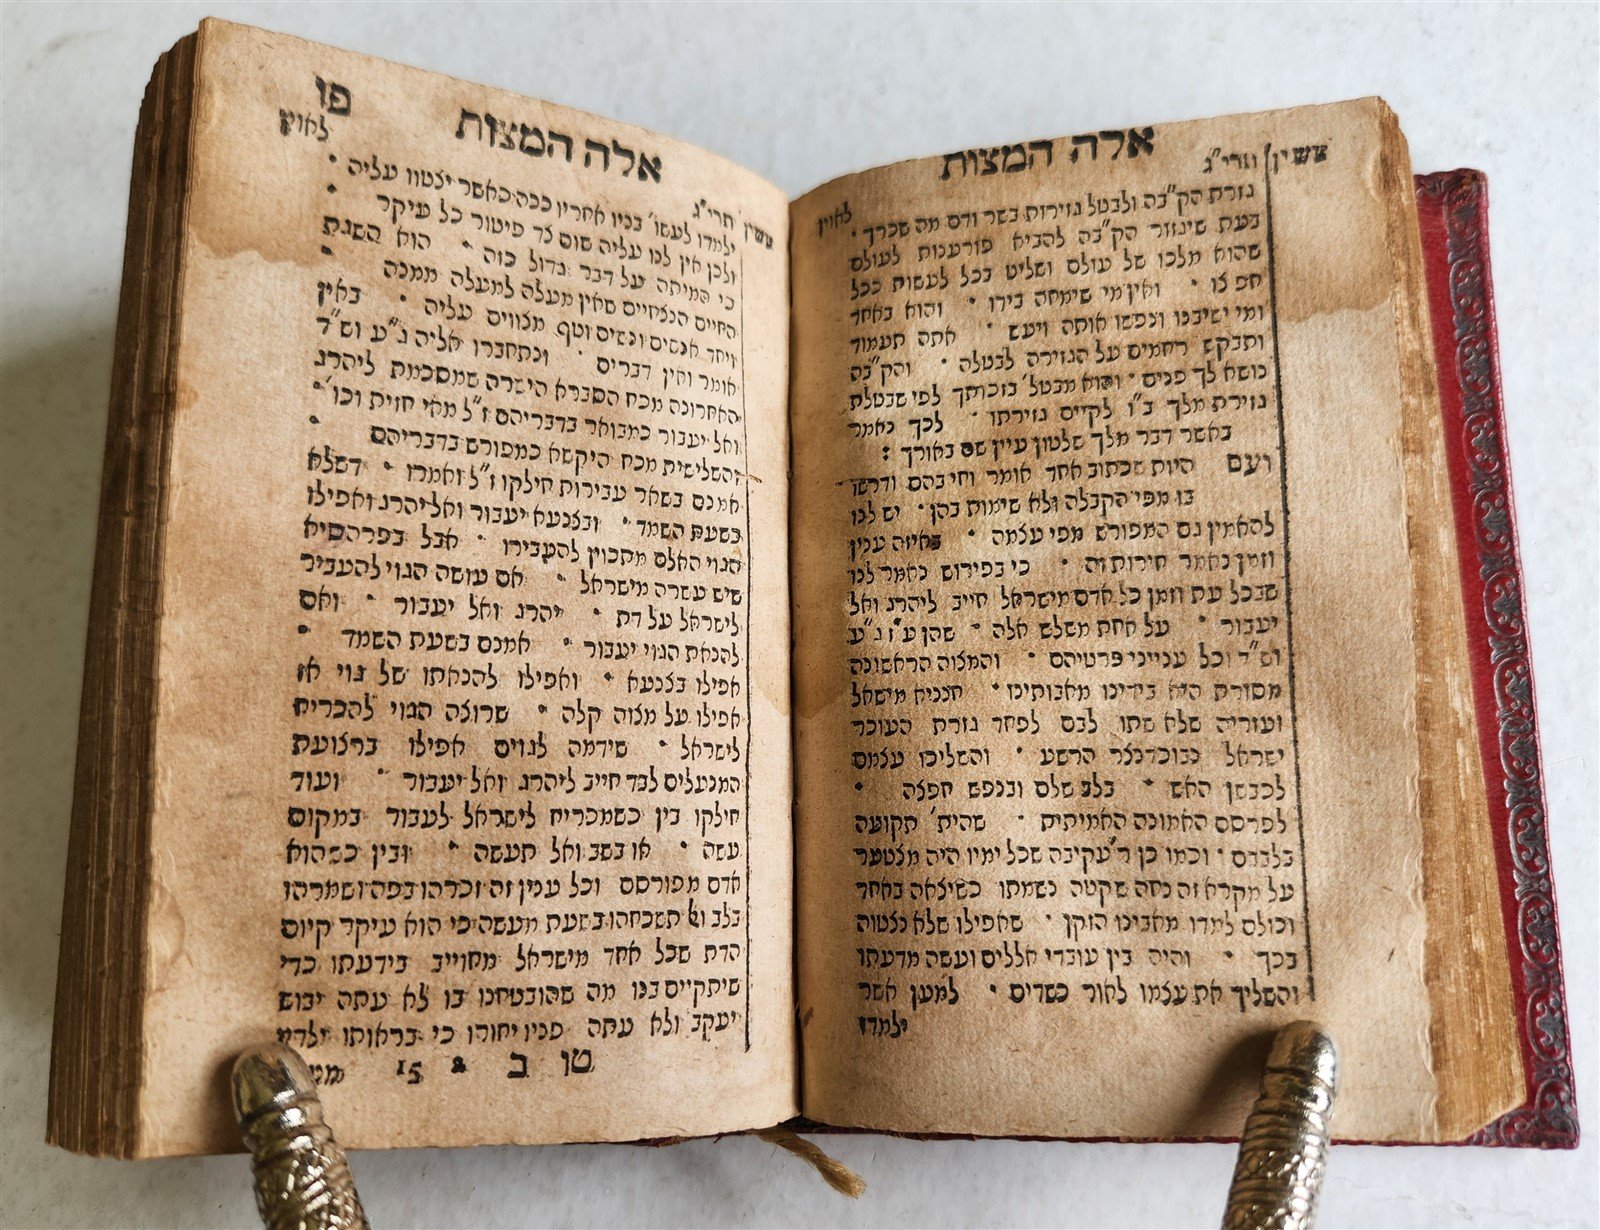 ששין ותרי"ג אלה המצות לאוין
גזרת הק"בה ולבטל גזירות בשר ודם מה שכרך ·
בעת שיגזור הק"בה להביא פורענות לעולם
שהוא מלכו של עולם ושליט בכל לעשות ככל
חפצו · ואין מי שימחה בידו · והוא באחד
ומי ישיבנו ונפשו אותה ויעש · אתה תעמוד
ותבקש רחמים על הגזירה לבטלה · והק"בה
נושא לך פנים · והוא מבטל' בזכותך לפי שבטלת
גזירת מלך ב"ו לקיים גזירתו · לכך נאמר
באשר דבר מלך שלטון עיין שם באורך :
ועם היות שכתוב אחד אומר וחי בהם ודרשו
בו מפי הקבלה ולא שימות בהן · יש לנו
להאמין גם המפורש מפי עצמה · באיזה ענין
וזמן נאמר חירות זה · כי בפירוש נאמר לנו
שבכל עת וזמן כל אדם מישראל חייב ליהרג ואל
יעבור · על אחת משלש אלה · שהן ע"ז ג"ע
וש"ד וכל ענייני פרטיהם · והמצוה הראשונה
מסורת היא בידינו מאבותינו · חנניא מישאל
ועזריה שלא שתו לבם לפחד גזרת העוכר
ישראל נבוכדנצר הרשע · והשליכו עצמם
לכבשן האש · בלב שלם ובנפש חפצה ·
לפרסם האמונה האמיתית · שהית' תקועה
בלבבם · וכמו כן ר' עקיבה שכל ימיו היה מצטער
על מקרא זה נחה שקטה נשמתו כשיצאה באחד
וכולם למדו מאבינו הזקן · שאפילו שלא נצטוה
בכך · והיה בין עובדי אלילים ועשה מדעתו
והשליך את עצמו לאור כשדים · למען אשר
ילמדו
ששין תרי"ג אלה המצות לאוין פו
ילמדו לעשו' בניו אחריו ככה כאשר יצטוו עליה ·
ולכן אין לנו עליה שום צד פיטור כל עיקר ·
כי המיתה על דבר גדול כזה · הוא השגת
החיים הנצחיים שאין מעלה למעלה ממנה ·
ויחד אנשים ונשים וטף מצווים עליה · באין
אומר ואין דברים · ונתחברו אליה ג"ע וש"ד
האחרונה מכח הסברא הישרה שמסכמת ליהרג
ואל יעבור כמבואר בדבריהם ז"ל מאי חזית וכו' ·
והשלישית מכח היקשא כמפורש בדבריהם ·
אמנם בשאר עבירות חילקו ז"ל ואמרו · דשלא
בשעת השמד · ובצנעא יעבור ואל יהרג ואפילו
הגוי האלם מתכוין להעבירו · אבל בפרהסיא
שיש עשרה מישראל · אם עושה הגוי להעביר
לישראל על דת · יהרג ואל יעבור · ואם
להנאת הגוי יעבור · אמנם בשעת השמד ·
אפילו בצנעא · ואפילו להנאתו של גוי או
אפילו על מצוה קלה · שרוצה הגוי להכריח
לישראל · שידמה לגוים אפילו ברצועת
המנעלים לבד חייב ליהרג ואל יעבור · ועוד
חילקו בין כשמכריח לישראל לעבור במקום
עשה · או בשב ואל תעשה · ובין כשהוא
אדם מפורסם וכל ענין זה זכרהו בפה ושמרהו
בלב ולא תשכחהו בשעת מעשה כי הוא עיקר קיום
הדת שכל אחד מישראל מחוייב בידעתו כדי
שיתקיים בנו מה שהובטחנו בו לא עתה יבוש
יעקב ולא עתה פניו יחורו כי בראותו ילדיו
טו ב 2 15